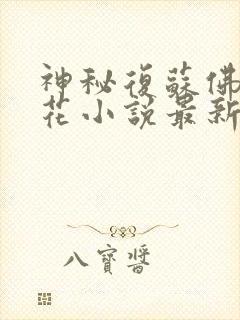 神秘復蘇佛
花小說最新
八寶醬